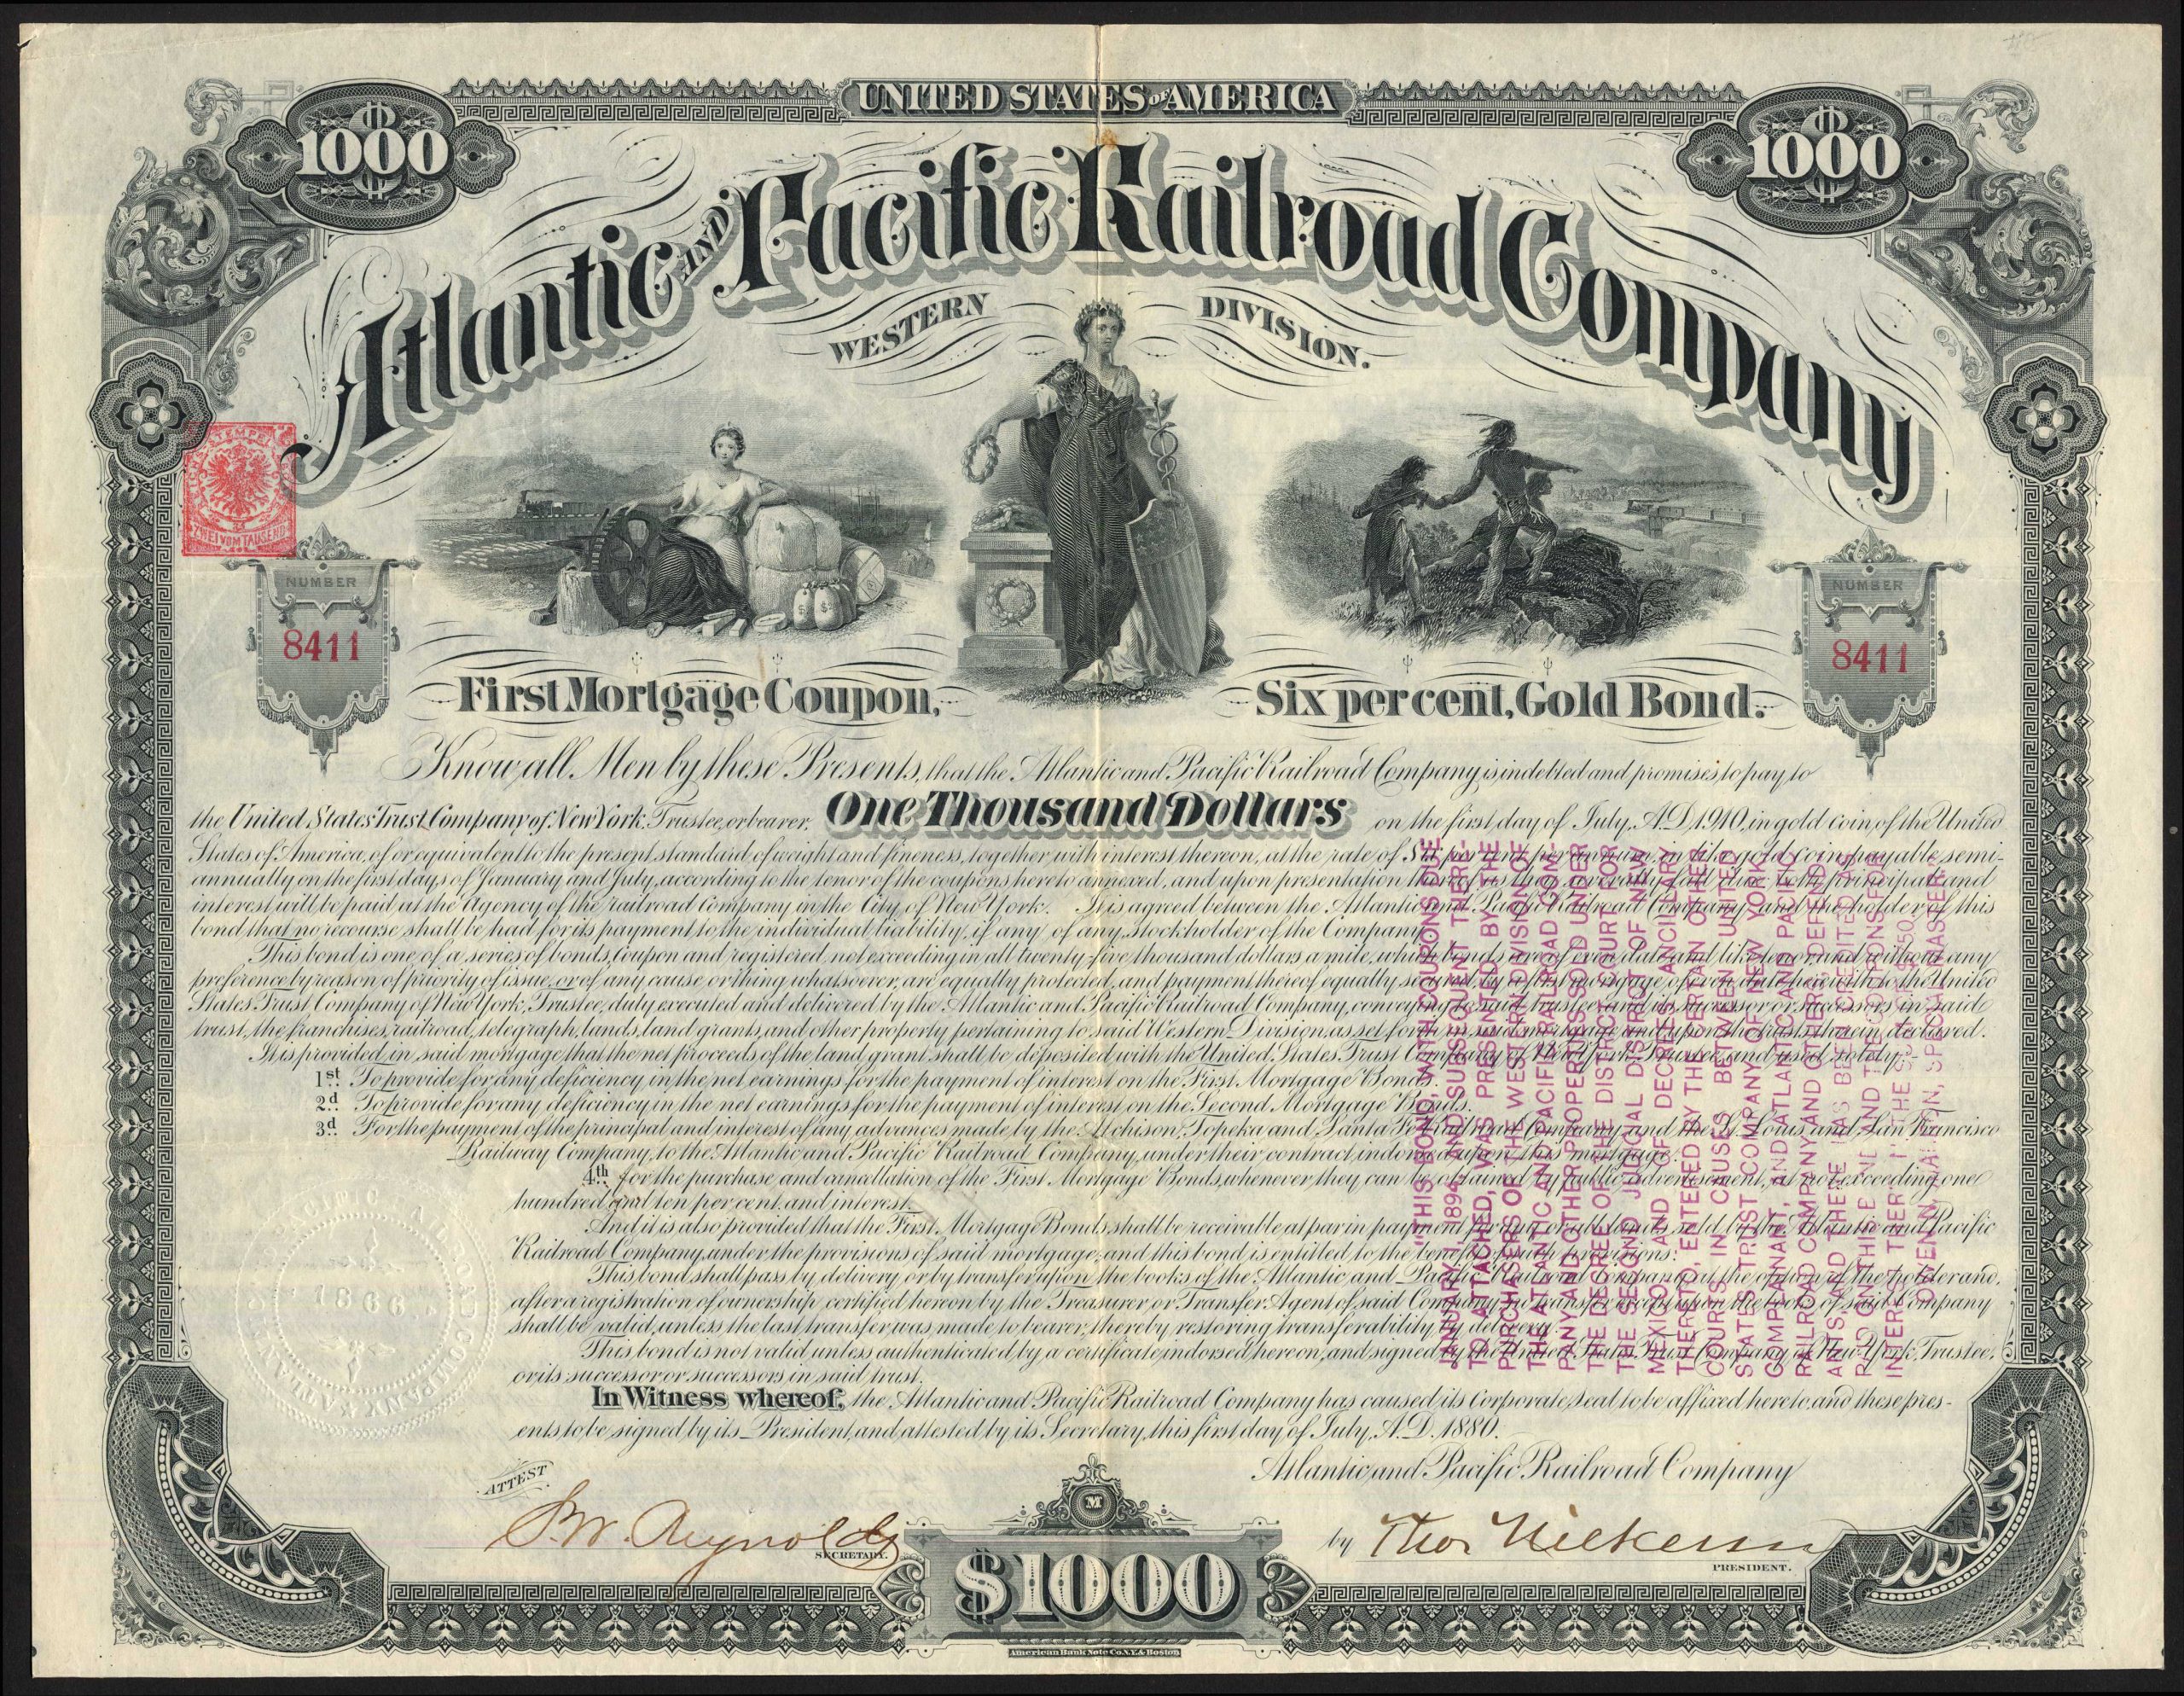 UNITED STATES OF AMERICA
1000
1000
Atlantic AND Pacific Railroad Company
WESTERN DIVISION.
ZWEI VOM TAUSEND
NUMBER
8411
NUMBER
8411
First Mortgage Coupon, Six per cent, Gold Bond.
Know all Men by these Presents, that the Atlantic and Pacific Railroad Company is indebted and promises to pay to
the United States Trust Company of New York, Trustee, or bearer, One Thousand Dollars on the first day of July, A.D. 1910, in gold coin of the United
States of America, of or equivalent to the present standard of weight and fineness, together with interest thereon, at the rate of Six per cent per annum, in like gold coin payable semi-
annually on the first days of January and July, according to the tenor of the coupons hereto annexed, and upon presentation thereof as they severally fall due, both principal and
interest will be paid at the Agency of the railroad company in the City of New York. It is agreed between the Atlantic and Pacific Railroad Company and the holder of this
bond that no recourse shall be had for its payment to the individual liability, if any, of any stockholder of the Company.
This bond is one of a series of bonds, Coupon and registered, not exceeding in all twenty-five thousand dollars a mile, which bonds are of even date and like tenor and without any
preference by reason of priority of issue, or of any cause or thing whatsoever, are equally protected, and payment thereof equally secured by a first mortgage, of even date herewith, to the United
States Trust Company of New York, Trustee, duly executed and delivered by the Atlantic and Pacific Railroad Company, conveying to said trustee and its successor or successors, in said
trust, the franchises, railroad, telegraph, lands, land grants, and other property pertaining to said Western Division, as set forth in said mortgage and upon the trusts therein declared.
It is provided in said mortgage that the net proceeds of the land grant shall be deposited with the United States Trust Company of New York, Trustee, and used solely:
1st. To provide for any deficiency in the net earnings for the payment of interest on the First Mortgage Bonds.
2d. To provide for any deficiency in the net earnings for the payment of interest on the Second Mortgage Bonds.
3d. For the payment of the principal and interest of any advances made by the Atchison, Topeka and Santa Fe Railroad Company and the St. Louis and San Francisco
Railway Company, to the Atlantic and Pacific Railroad Company, under their contract indorsed upon this mortgage.
4th. for the purchase and cancellation of the First Mortgage Bonds, whenever they can be obtained by public advertisement, at not exceeding one
hundred and ten per cent. and interest.
And it is also provided that the First Mortgage Bonds shall be receivable at par in payment for any or all lands sold by the Atlantic and Pacific
Railroad Company, under the provisions of said mortgage, and this bond is entitled to the benefit of such provisions.
This bond shall pass by delivery or by transfer upon the books of the Atlantic and Pacific Railroad Company, at the option of the holder and,
after a registration of ownership certified hereon by the Treasurer or Transfer Agent of said Company no transfer except upon the books of said Company
shall be valid, unless the last transfer was made to bearer, thereby restoring transferability by delivery.
This bond is not valid unless authenticated by a certificate indorsed hereon, and signed by the United States Trust Company of New York, Trustee,
or its successor or successors in said trust.
In Witness whereof, the Atlantic and Pacific Railroad Company has caused its Corporate Seal to be affixed hereto, and these pres-
ents to be signed by its President, and attested by its Secretary, this first day of July, A.D. 1880.
Atlantic and Pacific Railroad Company
ATTEST
J.W. Reynolds
SECRETARY.
by Thos Nickerson
PRESIDENT.
M
$1000
American Bank Note Co. N.Y. & Boston
PACIFIC RAILROAD COMPANY ATLAN
1866
"THIS BOND, WITH COUPONS DUE
JANUARY 1, 1894, AND SUBSEQUENT THERE-
TO ATTACHED, WAS PRESENTED BY THE
PURCHASERS OF THE WESTERN DIVISION OF
THE ATLANTIC AND PACIFIC RAILROAD COM-
PANY AND OTHER PROPERTIES SOLD UNDER
THE DECREE OF THE DISTRICT COURT FOR
THE SECOND JUDICIAL DISTRICT OF NEW
MEXICO AND OF DECREES ANCILLARY
THERETO, ENTERED BY THE CERTAIN OTHER
COURTS, IN CAUSES BETWEEN UNITED
STATES TRUST COMPANY OF NEW YORK,
COMPLAINANT, AND ATLANTIC AND PACIFIC
RAILROAD COMPANY AND OTHERS, DEFEND-
ANTS AND THERE HAS BEEN CREDITED AS
PAID ON THIS BOND AND THE COUPONS FOR
INTEREST THERETO THE SUM OF
SPECIAL MASTER.